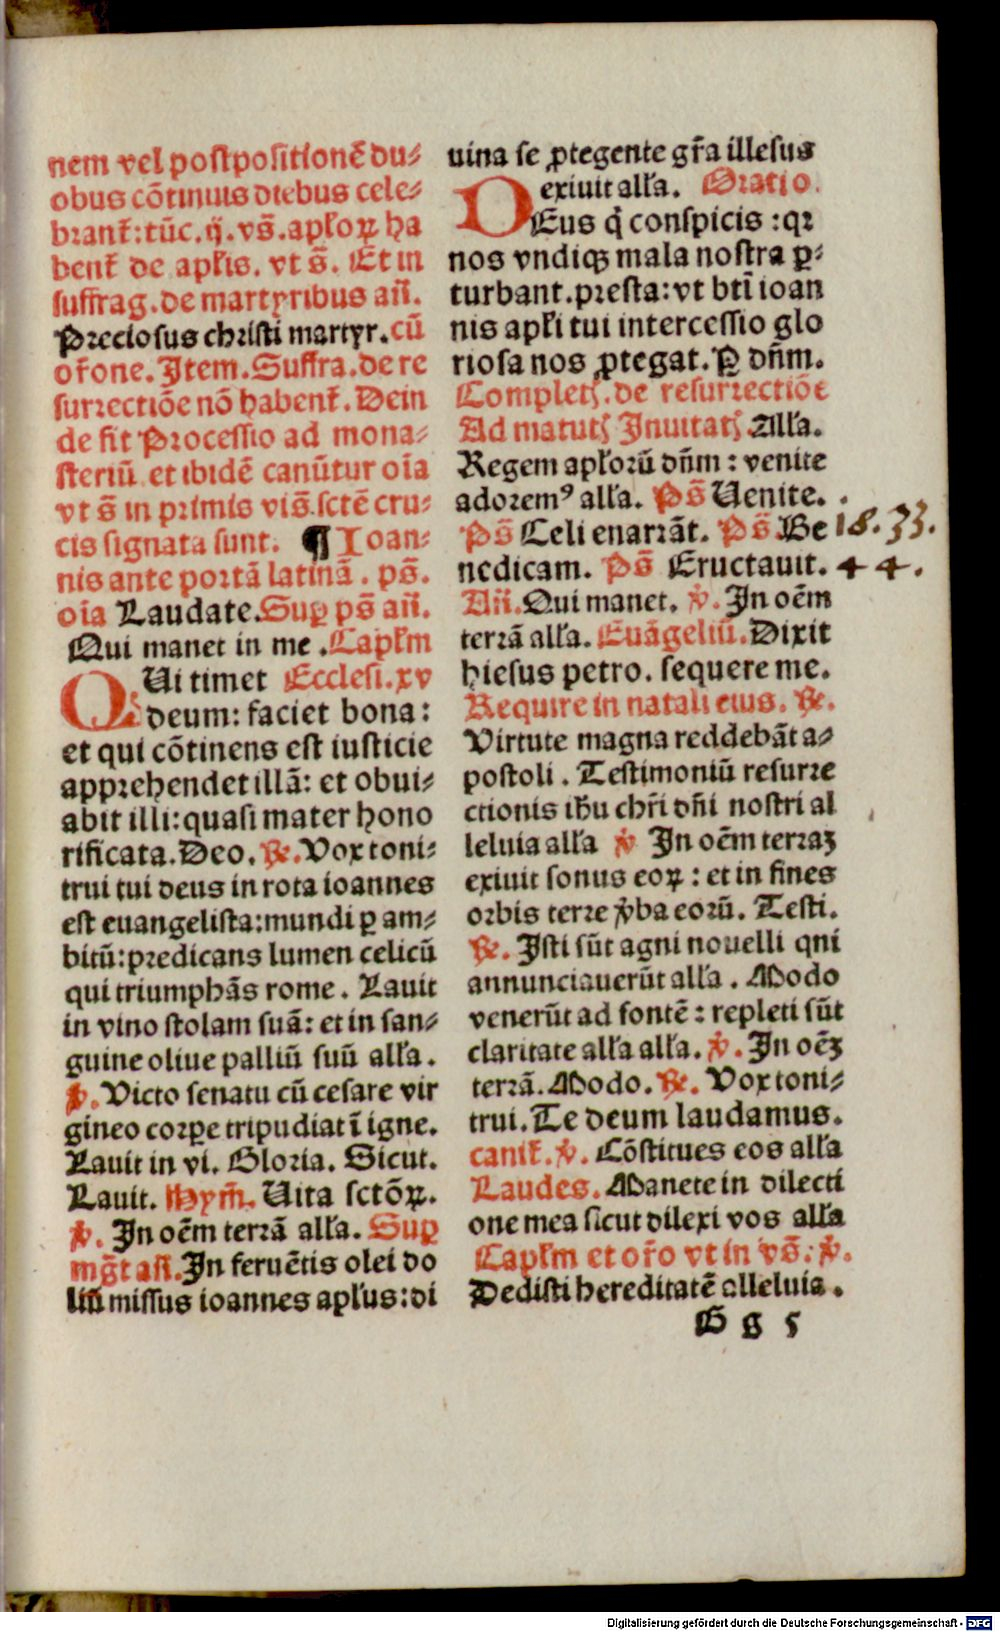 nem vel postpositionē du⸗
obus cōtinuis diebus cele⸗
brant᷑: tūc .ij. vs̄. aplꝛoꝝ ha
bent᷑ de apƚis. vt s̄. Et in
suffrag. de martyribus an̄.
Preciosus christi martyr. cū
or̄one. Item. Suffra. de re
surrectiōe nō habent᷑. Dein
de fit Processio ad mona⸗
steriū et ibidē canūtur oīa
vt s̄ in primis vis̄. sctē cru⸗
cis signata sunt. ¶ Ioan⸗
nis ante portā latinā. ps̄.
oīa Laudate. Suꝑ ps̄ an̄.
Qui manet in me. Capƚm
QUi timet Ecclesi. xv
deum: faciet bona:
et qui cōtinens est iusticie
apprehendet illā: et obui⸗
abit illi: quasi mater hono
rificata. Deo. ℟. Vox toni⸗
trui tui deus in rota ioannes
est euangelista: mundi ꝑ am⸗
bitū: predicans lumen celicū
qui triumphās rome. Lauit
in vino stolam suā: et in san⸗
guine oliue palliū suū alƚa.
℣. Victo senatu cū cesare vir
gineo corꝑe tripudiat ī igne.
Lauit in vi. Gloria. Sicut.
Lauit. Hym̄. Uita sctōꝝ.
℣. In oēm terrā alƚa. Suꝑ
mḡt an̄. In feruētis olei do
liū missus ioannes apƚus: di
uina se ꝓtegente gr̄a illesus
exiuit alƚa. Oratio.
DEus q̇ conspicis: qꝛ
nos vndiqꝫ mala nostra ꝑ⸗
turbant. presta: vt bt̄i ioan
nis apƚi tui intercessio glo
riosa nos ꝓtegat. Ꝑ dn̄m.
Completꝭ. de resurrectiōe
Ad matutꝭ Inuitatꝭ Alƚa.
Regem apƚorū dn̄m: venite
adoremꝰ alƚa. Ps̄ Uenite.
Ps̄ Celi enarrāt. Ps̄ Be 18. 33.
nedicam. Ps̄ Eructauit. 44.
An̄. Qui manet. ℣. In oēm
terrā alƚa. Euāgeliū. Dixit
hiesus petro. sequere me.
Require in natali eius. ℟.
Virtute magna reddebāt a⸗
postoli. Testimoniū resurre
ctionis ih̄u chr̄i dn̄i nostri al
leluia alƚa ℣ In oēm terraꝫ
exiuit sonus eoꝝ: et in fines
orbis terre v̓ba eorū. Testi.
℟. Isti sūt agni nouelli qui
annunciauerūt alƚa. Modo
venerūt ad fontē: repleti sūt
claritate alƚa alƚa. ℣. In oēꝫ
terrā. Modo. ℟. Vox toni⸗
trui. Te deum laudamus.
canit᷑. ℣. Cōstitues eos alƚa
Laudes. Manete in dilecti
one mea sicut dilexi vos alƚa
Capƚm et or̄o vt in vs̄: ℣.
Dedisti hereditatē alleluia.
G g 5
Digitalisierung gefördert durch die Deutsche Forschungsgemeinschaft - DFG